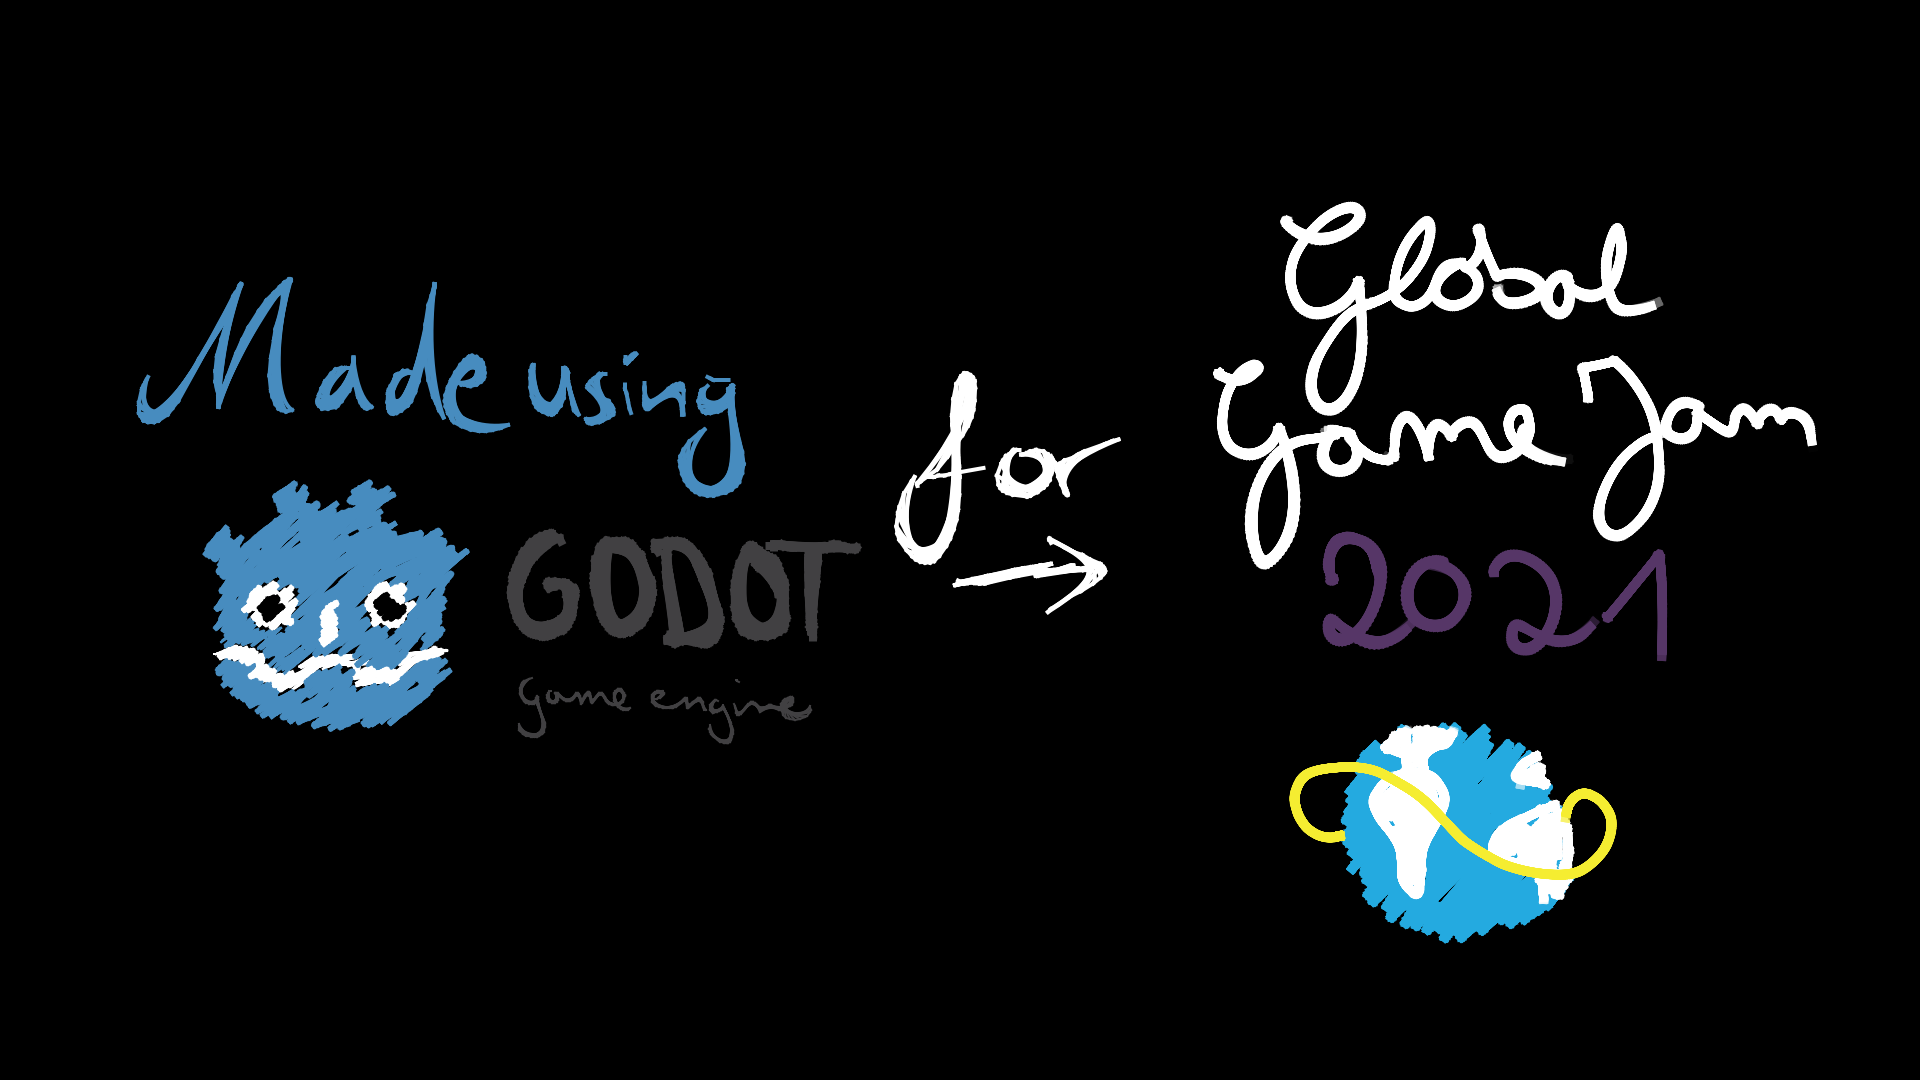 Made using
GODOT
game engine
for
Global
Game Jam
2021